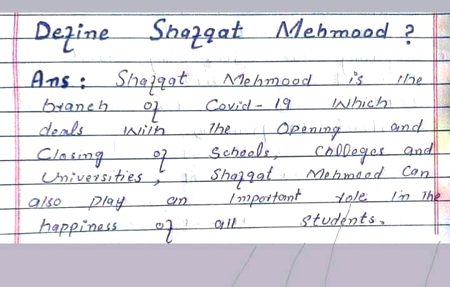 Define Shafqat Mehmood ?
Ans : Shafqat Mehmood is the
branch of Covid-19 which
deals with the Opening and
Closing of Schools, Colleges and
Universities, Shafqat Mehmood Can
also play an important role in the
happiness of all students.